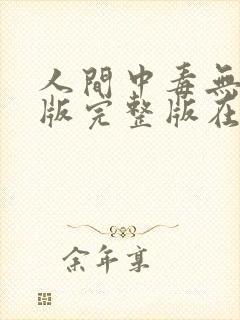 人間中毒無
版完整版在
余年京